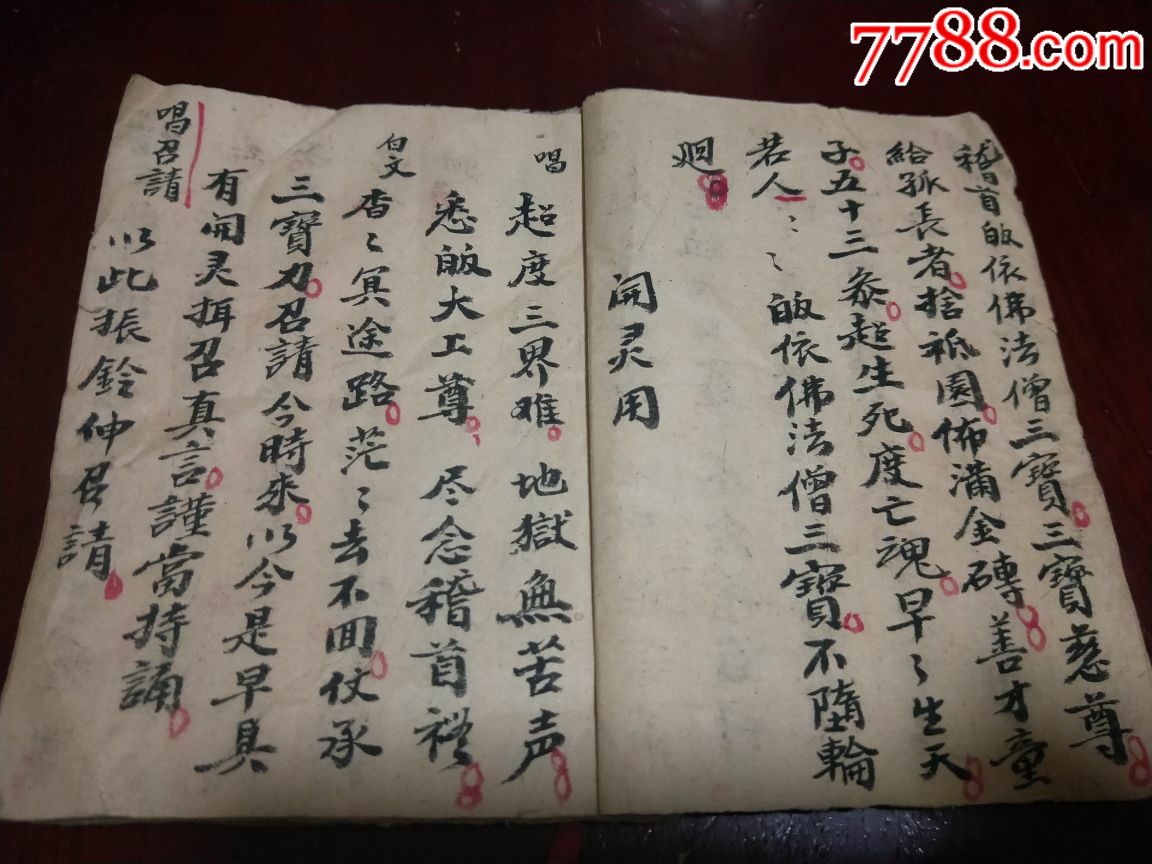 7788.com
稽首皈依佛法僧三寶三寶慈尊
給孤長者捨祗園佈滿金磚善才童
子五十三叅超生死度亡魂早〻生天
若人〻〻皈依佛法僧三寶不墮輪
廻
開灵用
唱
超度三界难地獄無苦声
悉皈大工尊尽念稽首礼
白文
杳〻冥途路茫〻去不囬仗承
三寶力召請今時来以今是早具
有開灵揖召真言謹當持誦
唱召請
以此振鈴伸召請